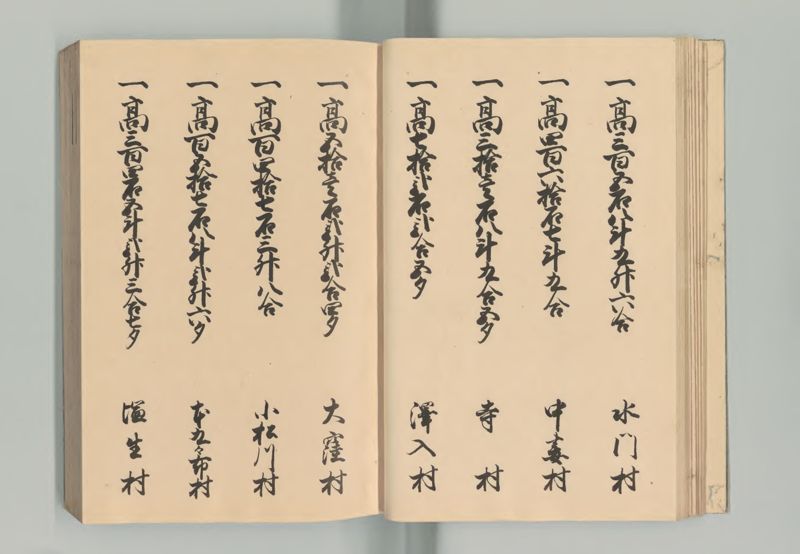 一高三百五石八斗九升六合 水門村
一高四百六拾石七斗九合 中妻村
一高三拾壱石八斗九合五夕 寺村
一高七拾弐石弐合五夕 澤入村
一高五拾壱石弐升弐合四夕 大窪村
一高百四拾七石三升八合 小松川村
一高百五拾七石八斗弐升六夕 村
一高三百四石五斗弐升三合七夕 塩生村